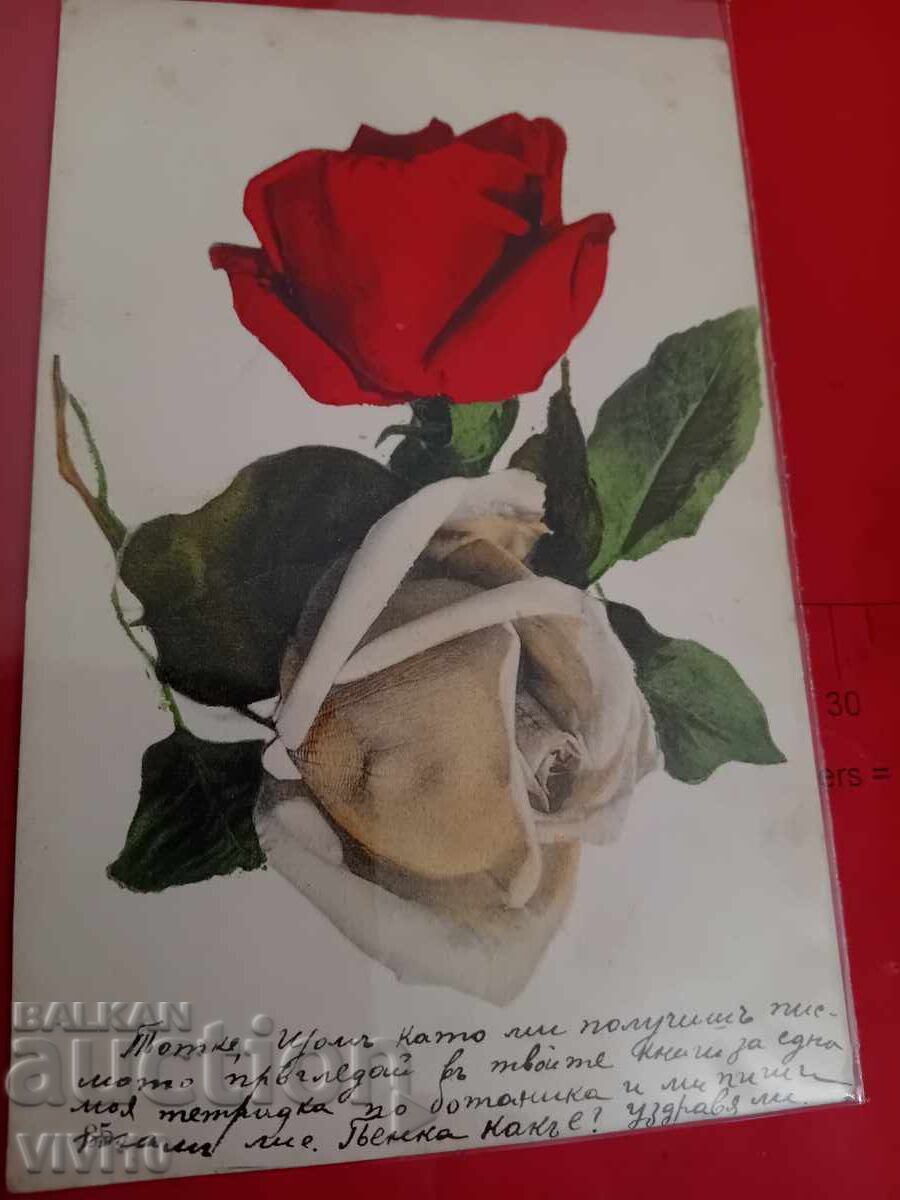 30
ers =
BALKAN
auction
VIVI10
Тотке, Щомъ като ми получишъ пис-
мото прѣгледай въ твойте книги за една
моя тетрадка по ботаника и ми пиши
ли е. Пенка какъ е? Уздравя ли.